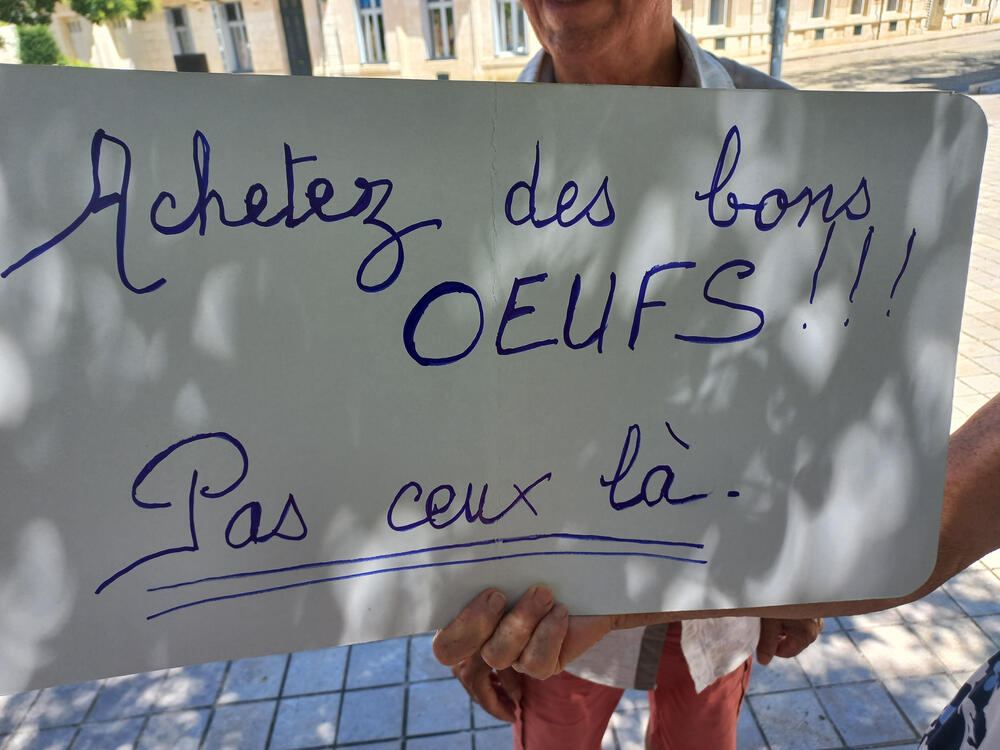 Achetez des bons
OEUFS!!!
Pas ceux là.